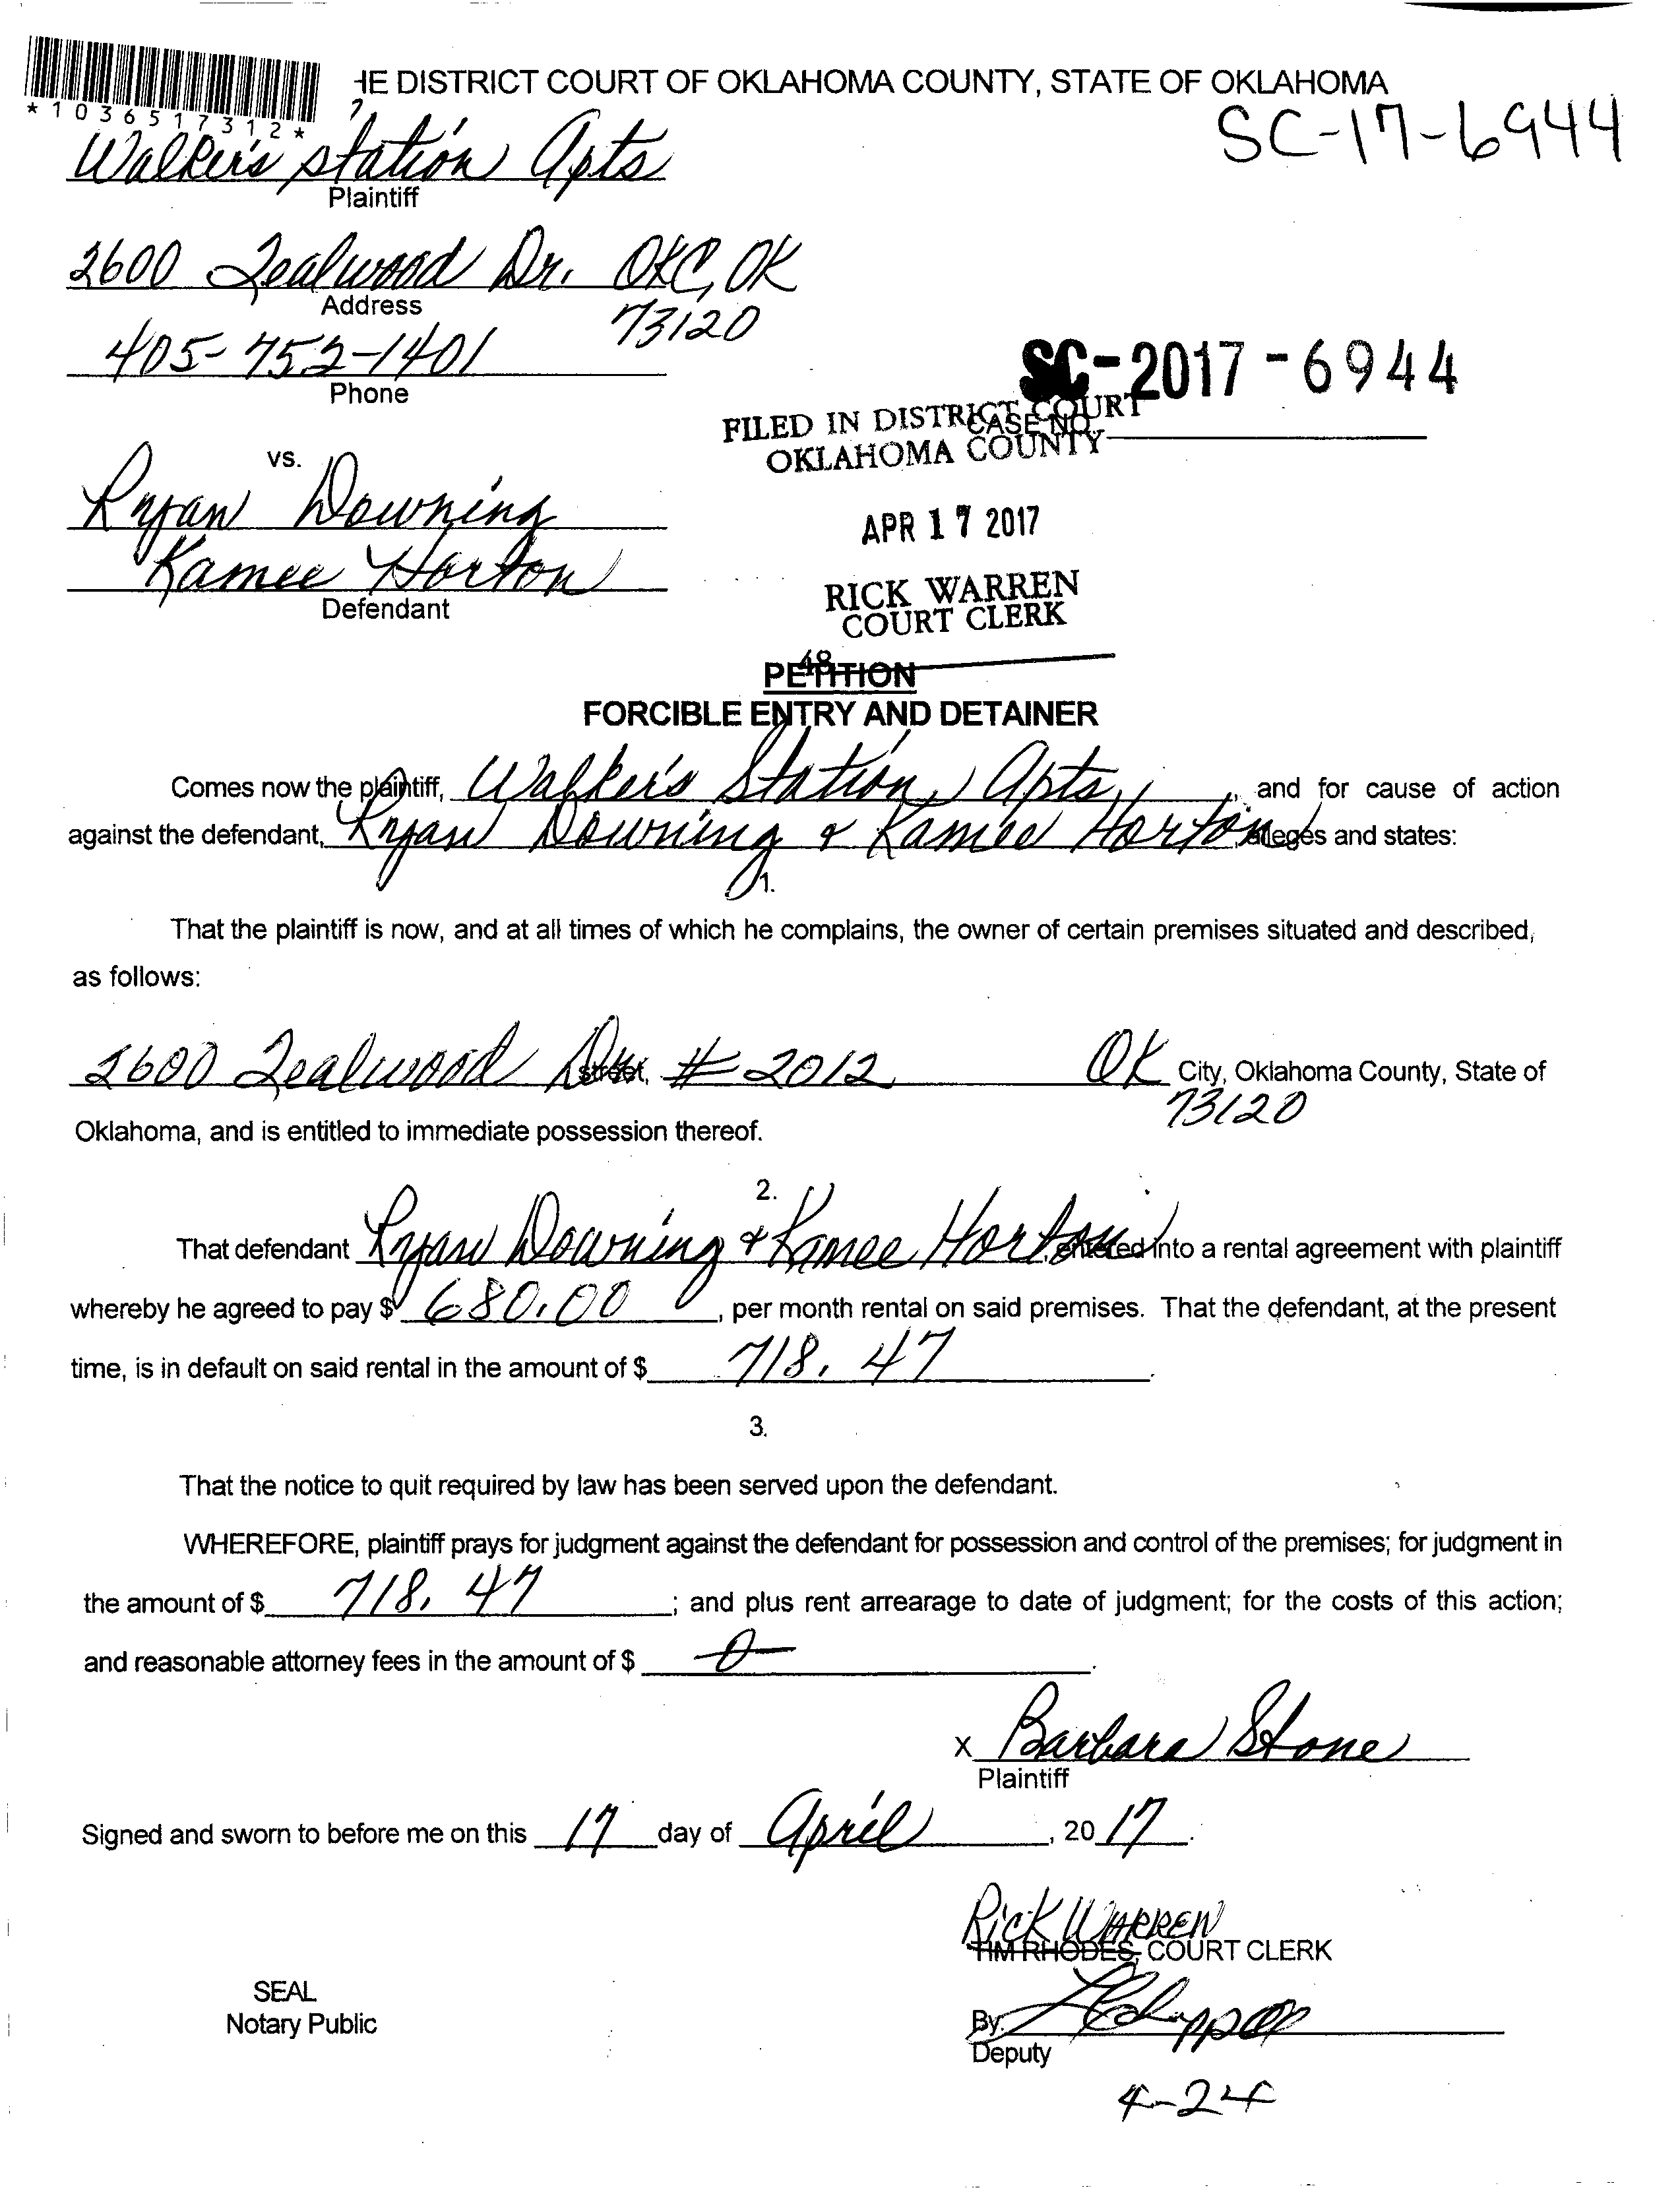 HE DISTRICT COURT OF OKLAHOMA COUNTY, STATE OF OKLAHOMA
*1036517312*
SC-17-6944
Walker's Station Apts
Plaintiff
2600 Tealwood Dr. OKC, OK
Address
73120
405-752-1401
Phone
SC-2017-6944
FILED IN DISTRICT COURT
CASE NO.
OKLAHOMA COUNTY
vs.
Ryan Downing
APR 17 2017
Kamee Horton
Defendant
RICK WARREN
COURT CLERK
48
PETITION
FORCIBLE ENTRY AND DETAINER
Comes now the plaintiff, Walker's Station Apts, and for cause of action
against the defendant, Ryan Downing & Kamee Horton, alleges and states:
1.
That the plaintiff is now, and at all times of which he complains, the owner of certain premises situated and described,
as follows:
2600 Tealwood Dr. Street, # 2012 OK City, Oklahoma County, State of
73120
Oklahoma, and is entitled to immediate possession thereof.
2.
That defendant Ryan Downing & Kamee Horton, entered into a rental agreement with plaintiff
whereby he agreed to pay $ 680.00, per month rental on said premises. That the defendant, at the present
time, is in default on said rental in the amount of $ 718.47.
3.
That the notice to quit required by law has been served upon the defendant.
WHEREFORE, plaintiff prays for judgment against the defendant for possession and control of the premises; for judgment in
the amount of $ 718.47; and plus rent arrearage to date of judgment; for the costs of this action;
and reasonable attorney fees in the amount of $ 0.
X Barbara Stone
Plaintiff
Signed and sworn to before me on this 17 day of April, 20 17.
Rick WARREN
TIM RHODES, COURT CLERK
SEAL
Notary Public
By:
Deputy
4-24